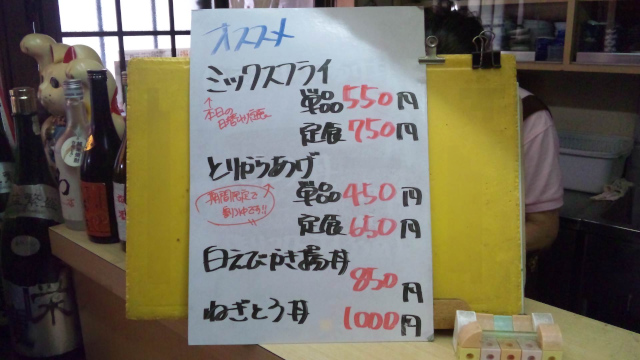 オススメ
ミックスフライ
単品 550円
↑本日の
日替わり定食
定食 750円
とりからあげ
単品 450円
期間限定で
定食 650円
白えびかき揚丼
850円
ねぎとろ丼
1000円